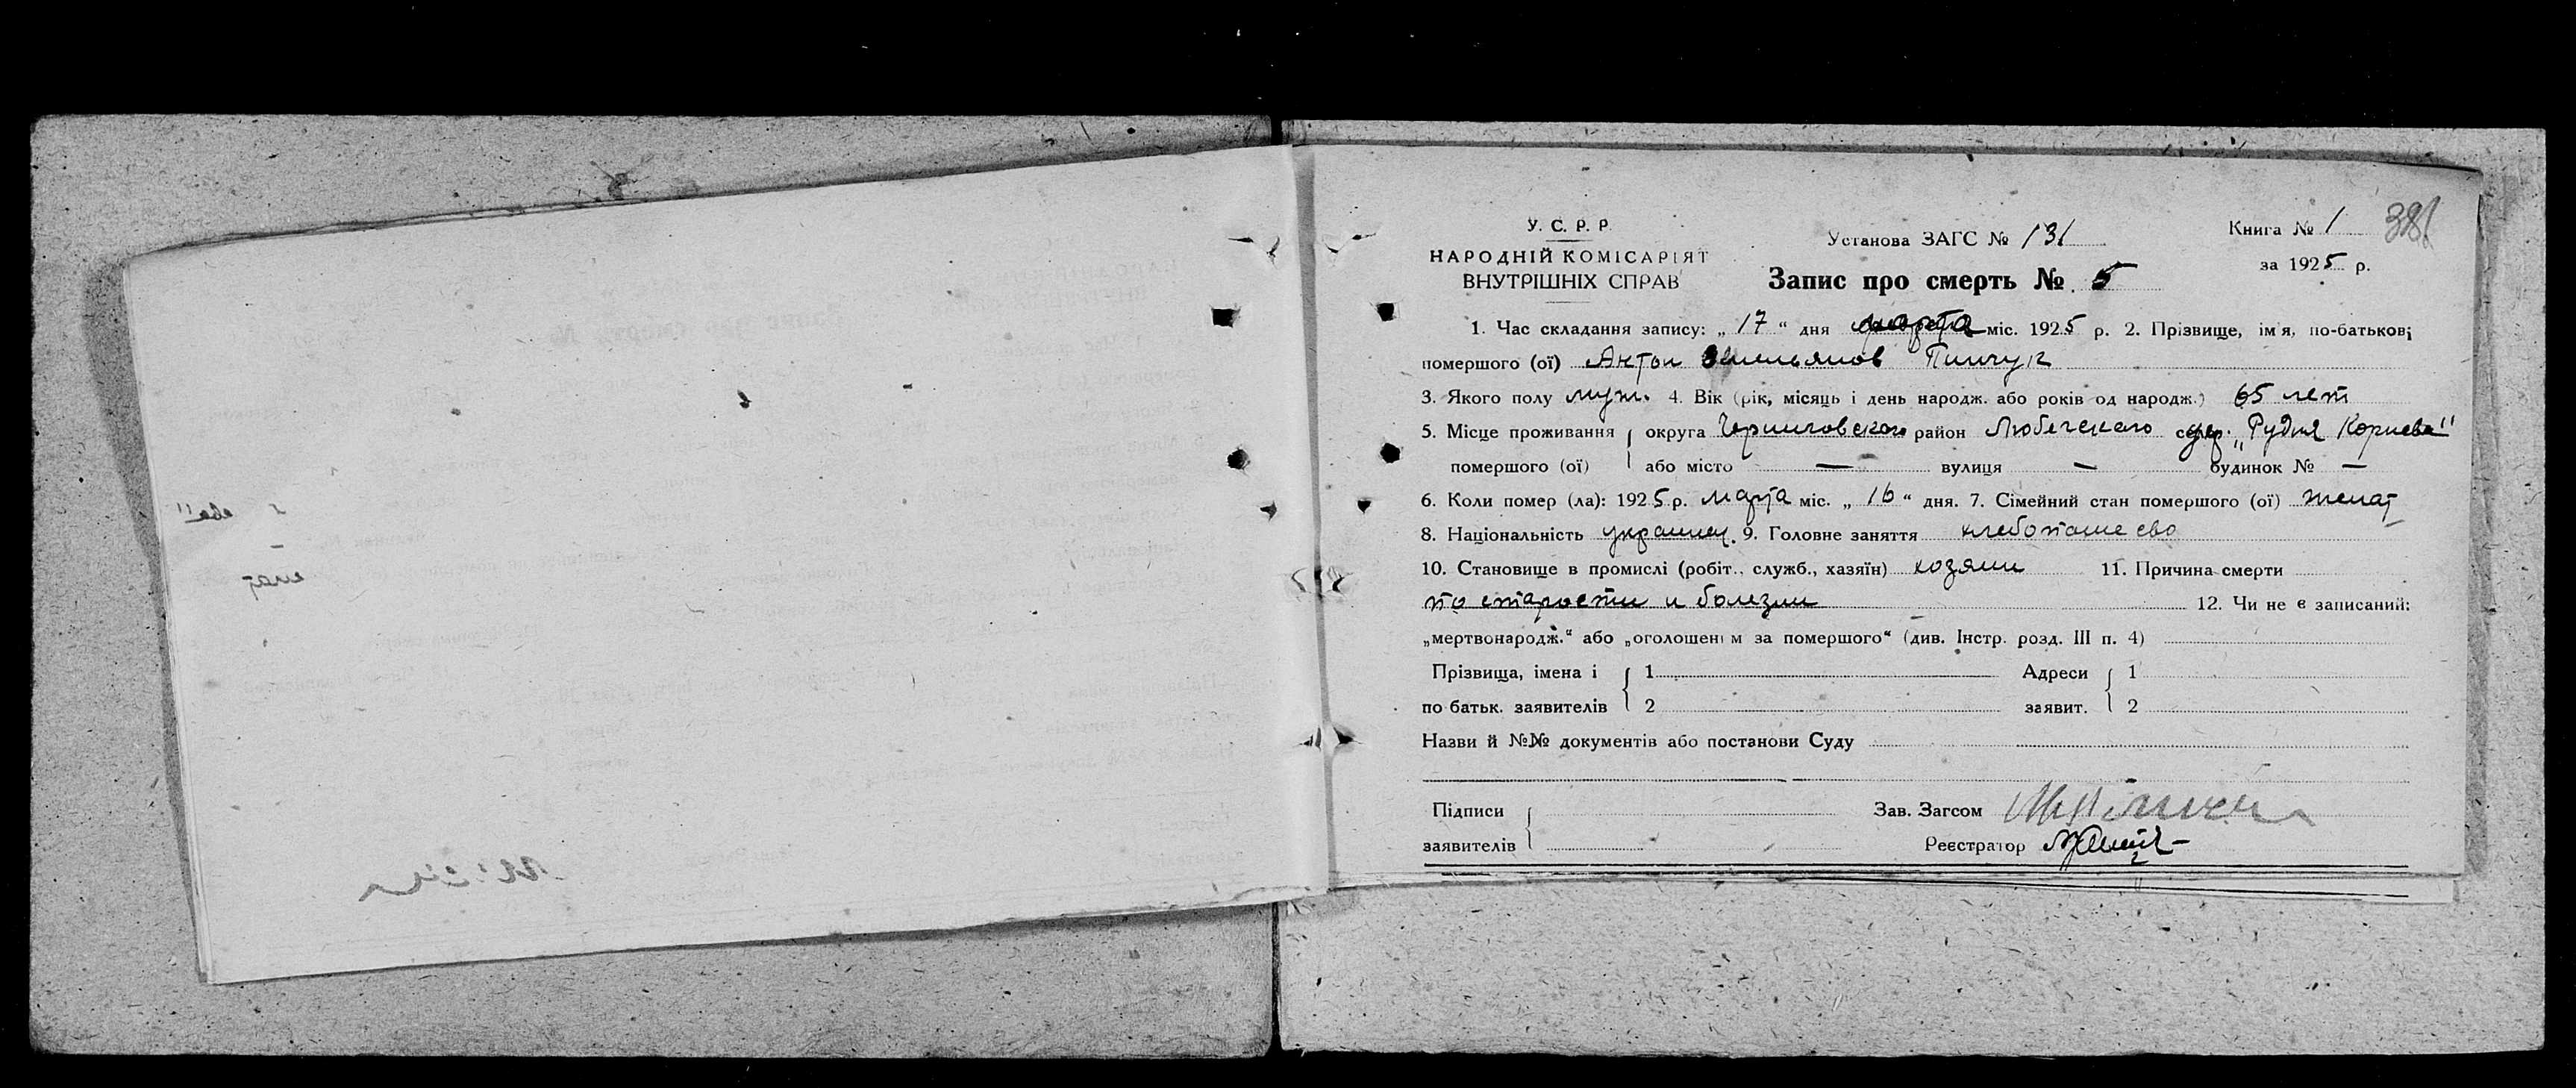 У. С. Р. Р.
НАРОДНІЙ КОМІСАРІЯТ
ВНУТРІШНІХ СПРАВ
Установа ЗАГС № 131
Книга № 1 381
за 1925 р.
Запис про смерть № 5
1. Час складання запису: „ 17 “ дня марта міс. 1925 р. 2. Прізвище, ім'я, по-батькові
помершого (ої) Антон Емельянов Пинчук
3. Якого полу муж. 4. Вік (рік, місяць і день народж. або років од народж.) 65 лет
5. Місце проживання округа Черниговского район Любечского дер. „Рудня Корнева"
помершого (ої) або місто — вулиця — будинок № —
6. Коли помер (ла): 1925 р. марта міс. „ 16 “ дня. 7. Сімейний стан помершого (ої) женат
8. Національність украинец. 9. Головне заняття
10. Становище в промислі (робіт., служб., хазяїн) хозяин 11. Причина смерти
по старости и болезни 12. Чи не є записаний:
„мертвонародж.“ або „оголошеним за помершого“ (див. Інстр. розд. III п. 4)
Прізвища, імена і 1 Адреси 1
по батьк. заявителів 2 заявит. 2
Назви й №№ документів або постанови Суду
Підписи Зав. Загсом
заявителів Реєстратор